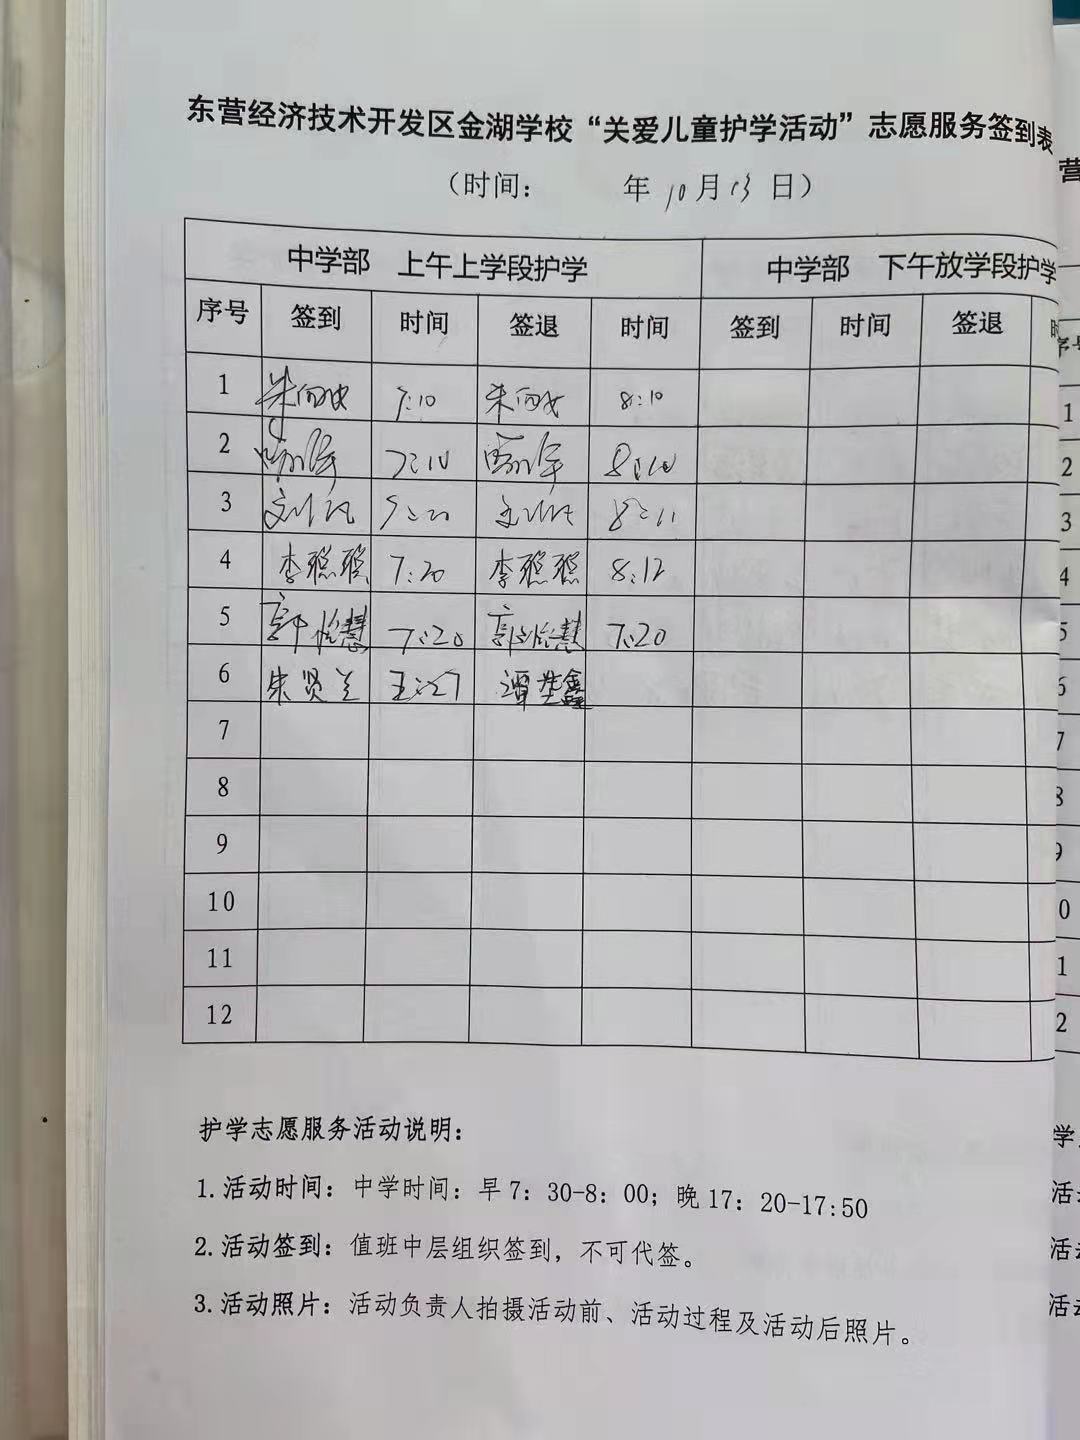 东营经济技术开发区金湖学校“关爱儿童护学活动”志愿服务签到表
（时间： 年 10月13日）
中学部 上午上学段护学 中学部 下午放学段护学
序号 签到 时间 签退 时间 签到 时间 签退
1 7:10 8:10
2 7:10 8:10
3 8:11
4 李聪聪 7:20 李聪聪 8:12
5 郭怡慧 7:20 郭怡慧 7:20
6 朱贤兰
7
8
9
10
11
12
护学志愿服务活动说明：
1.活动时间：中学时间：早7：30-8：00；晚17：20-17:50
2.活动签到：值班中层组织签到，不可代签。
3.活动照片：活动负责人拍摄活动前、活动过程及活动后照片。